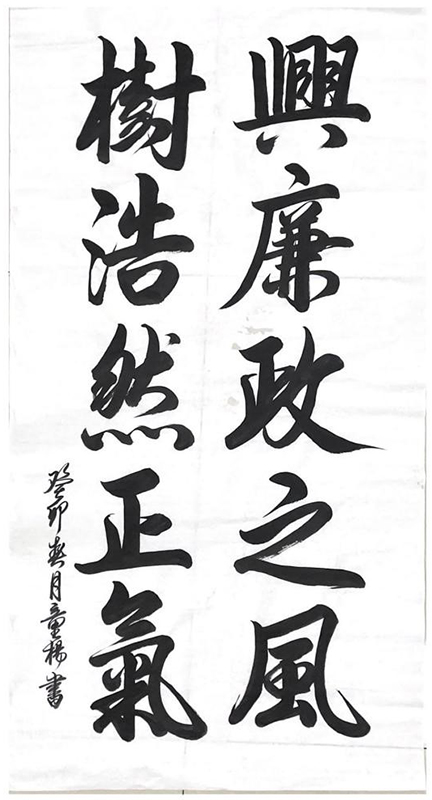 興廉政之風
樹浩然正氣
癸卯春月童楊書